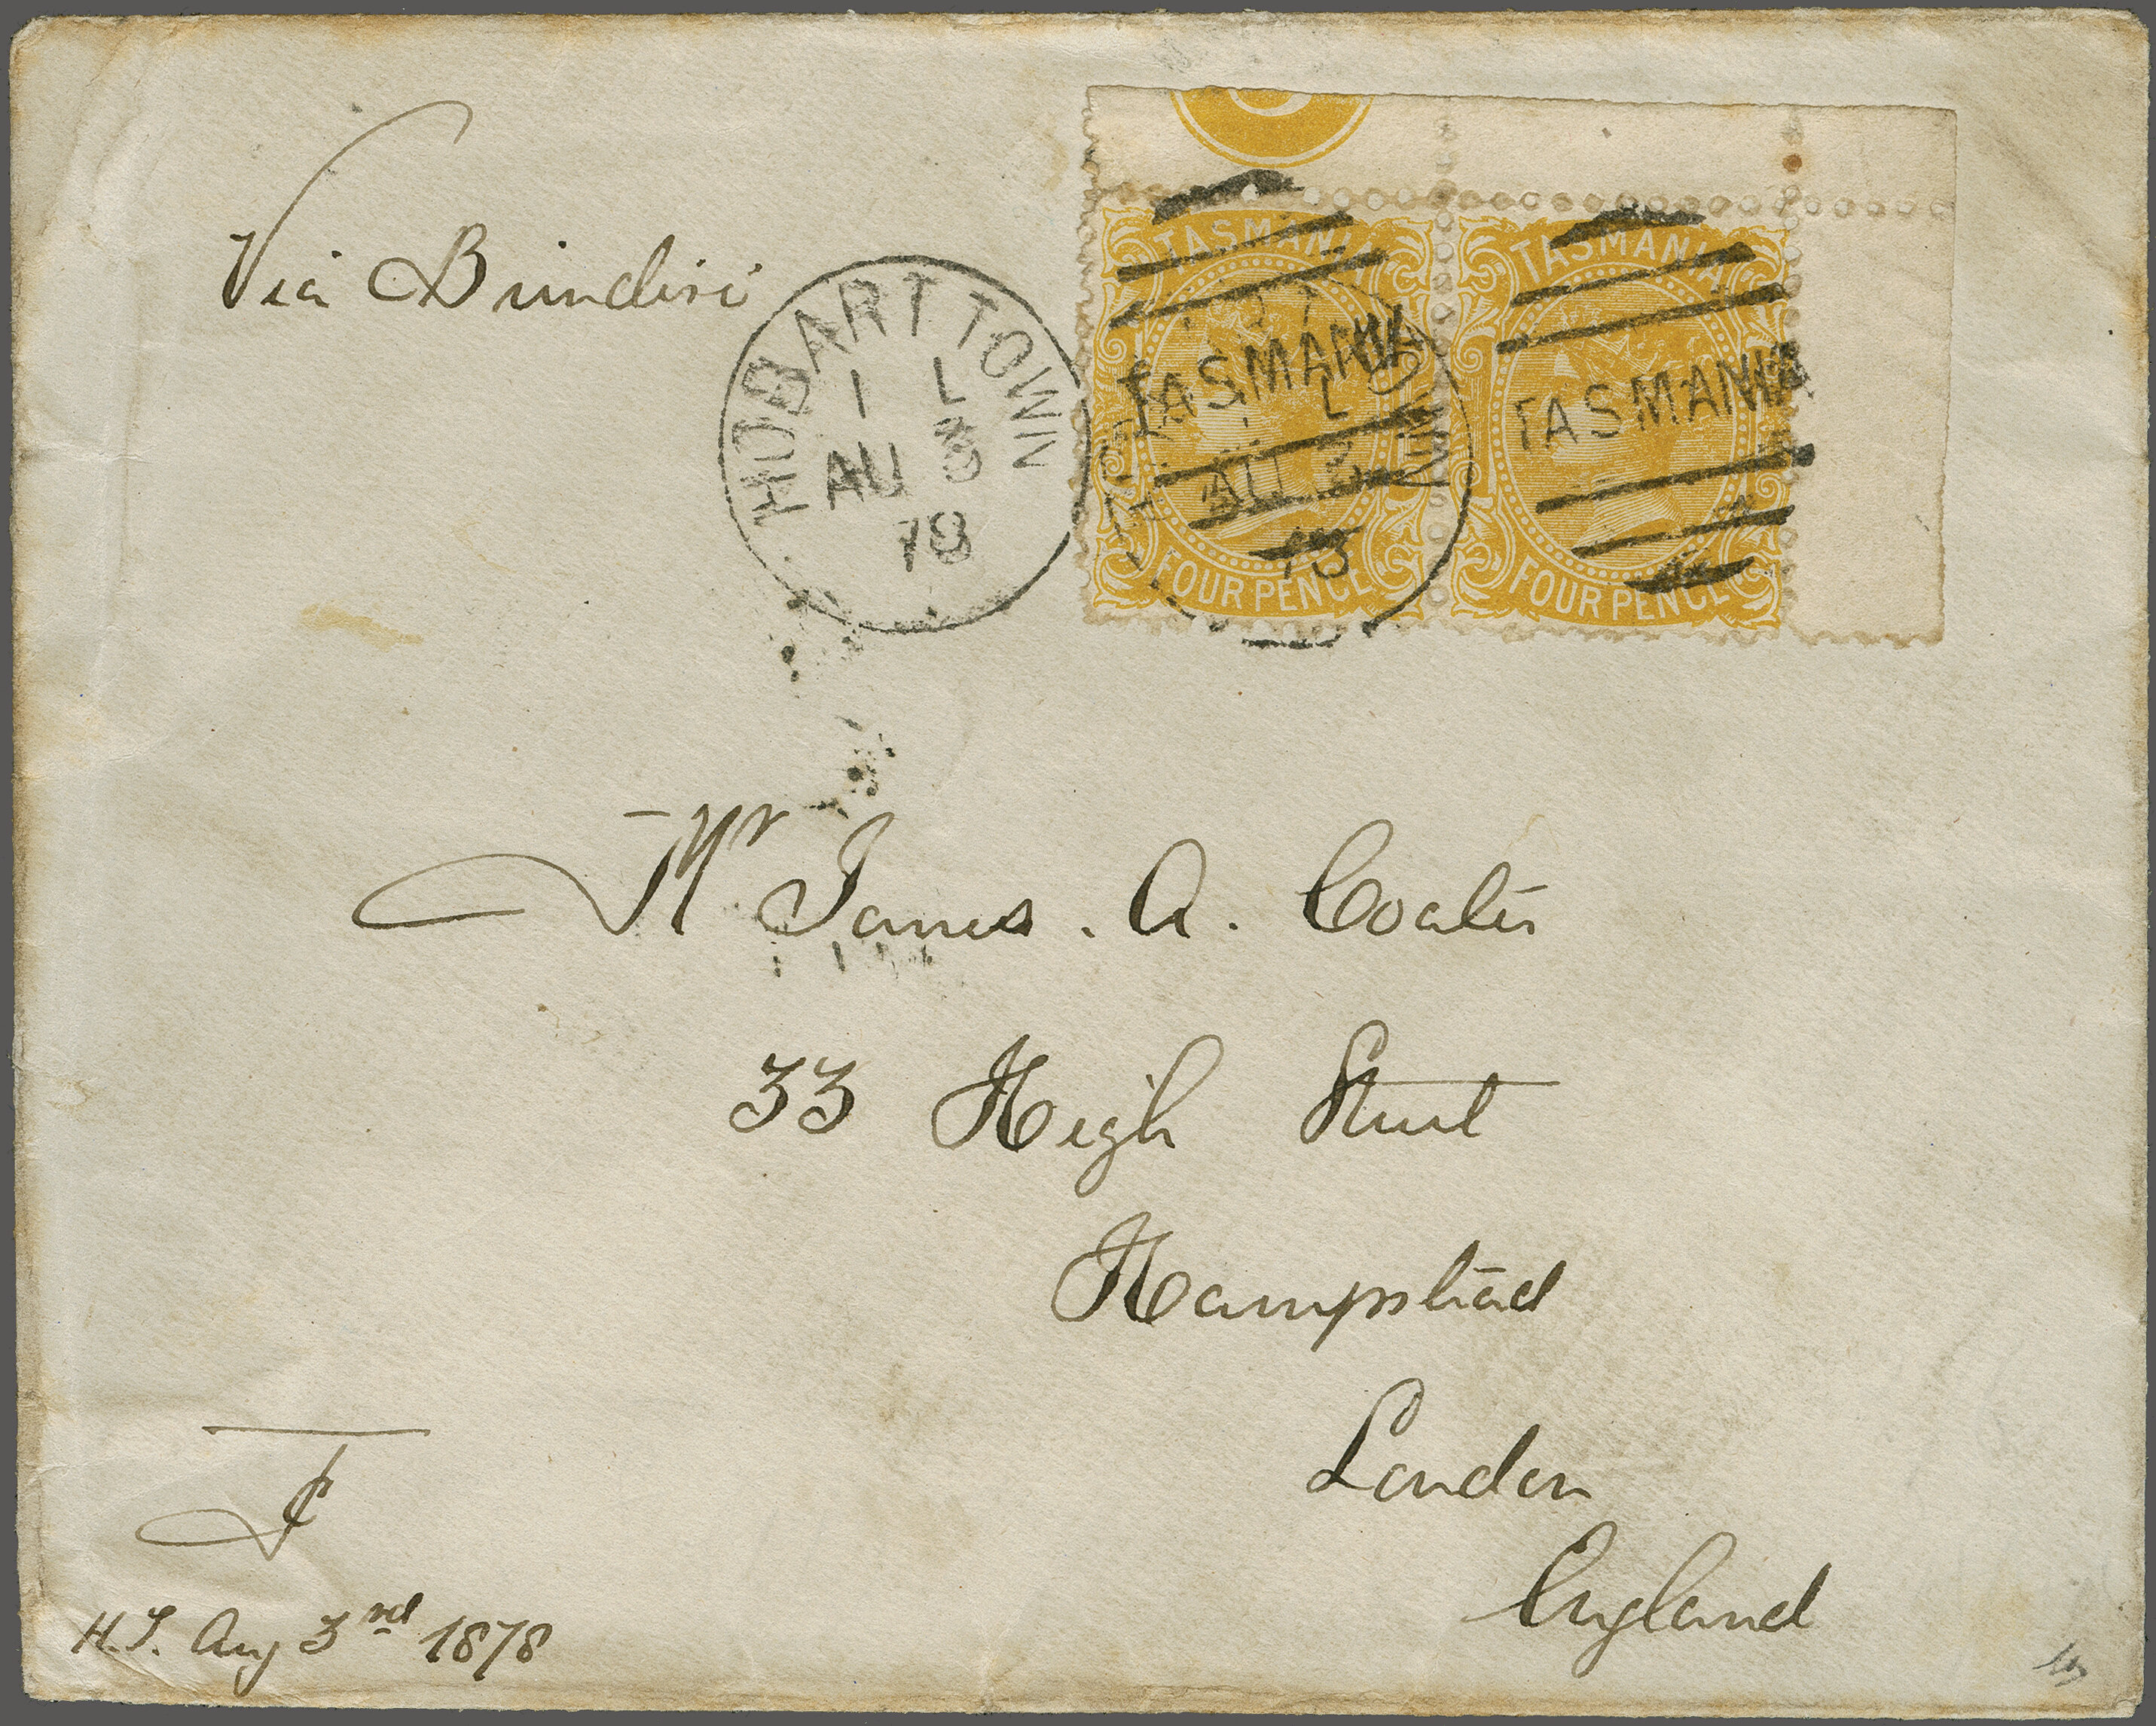 Via Brindisi
HOBART TOWN
1 L
AU 3
78
TASMANIA
TASMANIA
FOUR PENCE
TASMANIA
TASMANIA
FOUR PENCE
HOBART TOWN
L
AU 3
78
Mr James . A . Coates
33 High Street
Hampstead
London
England
H.T. Aug 3rd 1878